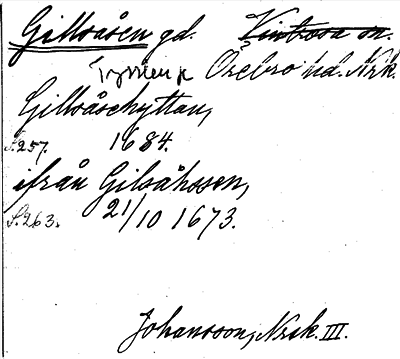 Gillsåsen gd. Vintrosa sn.
Tysslinge Örebro hd. Nrk.
Gillsåsehyttan,
S. 257. 1684.
ifrån Gilsåhssen,
S. 263. 21/10 1673.
Johansson, Nrsk. III.